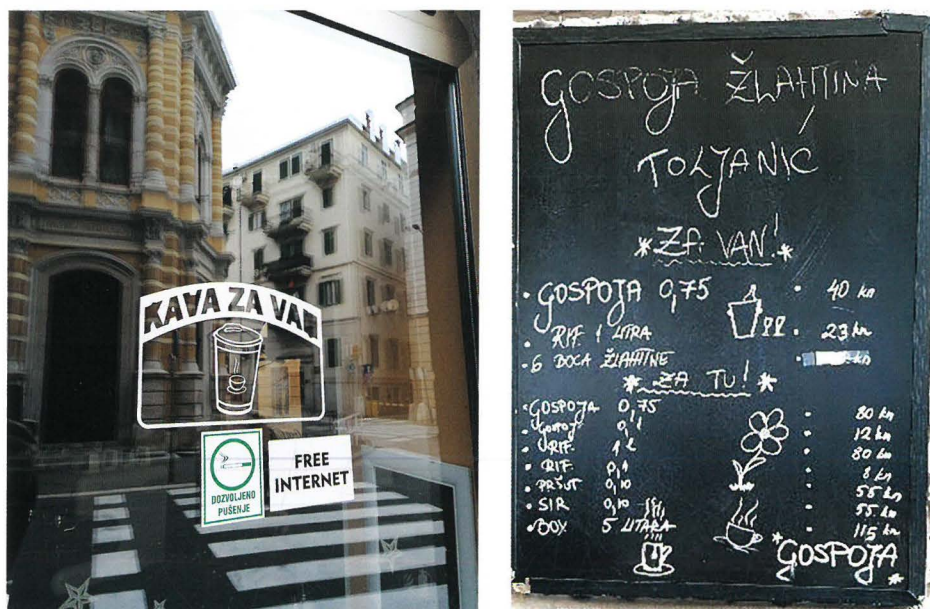 KAVA ZA VAN
DOZVOLJENO
PUŠENJE
FREE
INTERNET
GOSPOJA ŽLAHTINA
TOLJANIĆ
*ZA VAN!*
• GOSPOJA 0,75 • 40 kn
• RIF. 1 LITRA • 23 kn
• 6 BOCA ŽLAHTINE • kn
*ZA TU!*
• GOSPOJA 0,75 • 80 kn
• GOSPOJ 0,1 • 12 kn
• RIF. 1 • 80 kn
• RIF. 0,1 • 8 kn
• PRŠUT 0,10 • 55 kn
• SIR 0,10 • 55 kn
• BOX 5 LITARA • 115 kn
*GOSPOJA*